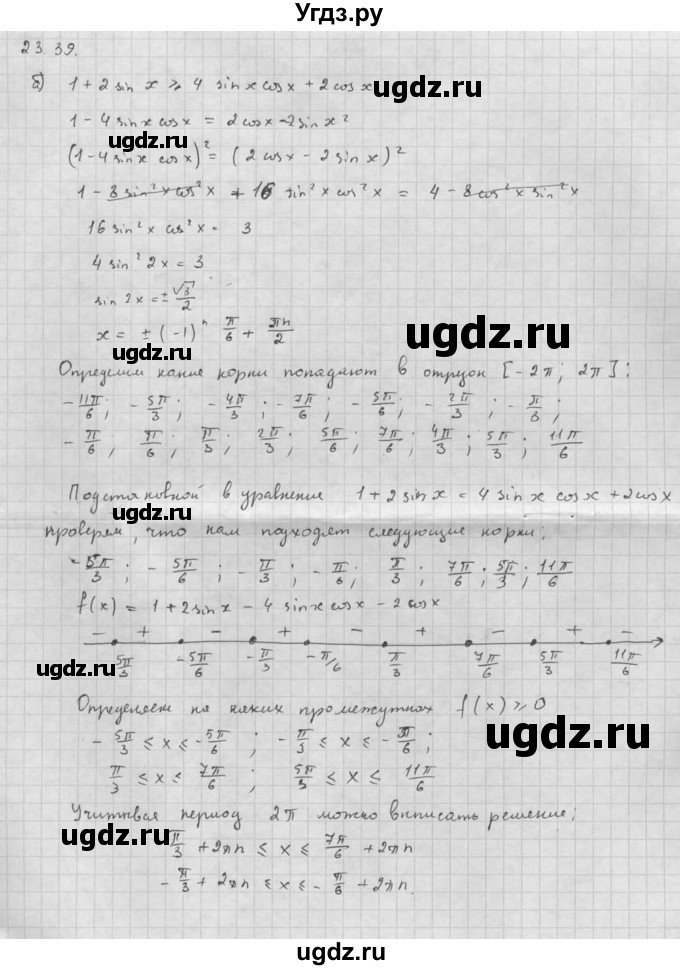 Угдз.ру
23.39.
б) 1 + 2 sin x ⩾ 4 sin x cos x + 2 cos x
ugdz.ru
1 - 4 sin x cos x = 2 cos x - 2 sin x ²
ugdz.ru
(1 - 4 sin x cos x)² = (2 cos x - 2 sin x)²
1 - 8 sin² x cos² x + 16 sin² x cos² x = 4 - 8 cos² x sin² x
16 sin² x cos² x = 3
ugdz.ru
4 sin² 2x = 3
sin 2x = ± √3/2
x = ± (-1)ⁿ π/6 + πn/2
ugdz.ru
ugdz.ru
Определим какие корни попадают в отрезок [-2π; 2π]:
-11π/6; -5π/3; -4π/3; -7π/6; -5π/6; -2π/3; -π/3;
-π/6; π/6; π/3; 2π/3; 5π/6; 7π/6; 4π/3; 5π/3; 11π/6
Подстановкой в уравнение 1 + 2 sin x = 4 sin x cos x + 2 cos x
проверяем, что нам подходят следующие корни:
-5π/3; -5π/6; -π/3; -π/6; π/3; 7π/6; 5π/3; 11π/6
ugdz.ru
f(x) = 1 + 2 sin x - 4 sin x cos x - 2 cos x
- + - + - + - + -
-5π/3 -5π/6 -π/3 -π/6 π/3 7π/6 5π/3 11π/6
ugdz.ru
Определяем на каких промежутках f(x) ⩾ 0
-5π/3 ⩽ x ⩽ -5π/6; -π/3 ⩽ x ⩽ -π/6;
ugdz.ru
π/3 ⩽ x ⩽ 7π/6; 5π/3 ⩽ x ⩽ 11π/6
Учитывая период 2π можно выписать решение:
π/3 + 2πn ⩽ x ⩽ 7π/6 + 2πn
ugdz.ru
-π/3 + 2πn ⩽ x ⩽ -π/6 + 2πn.
ugdz.ru
ugdz.ru